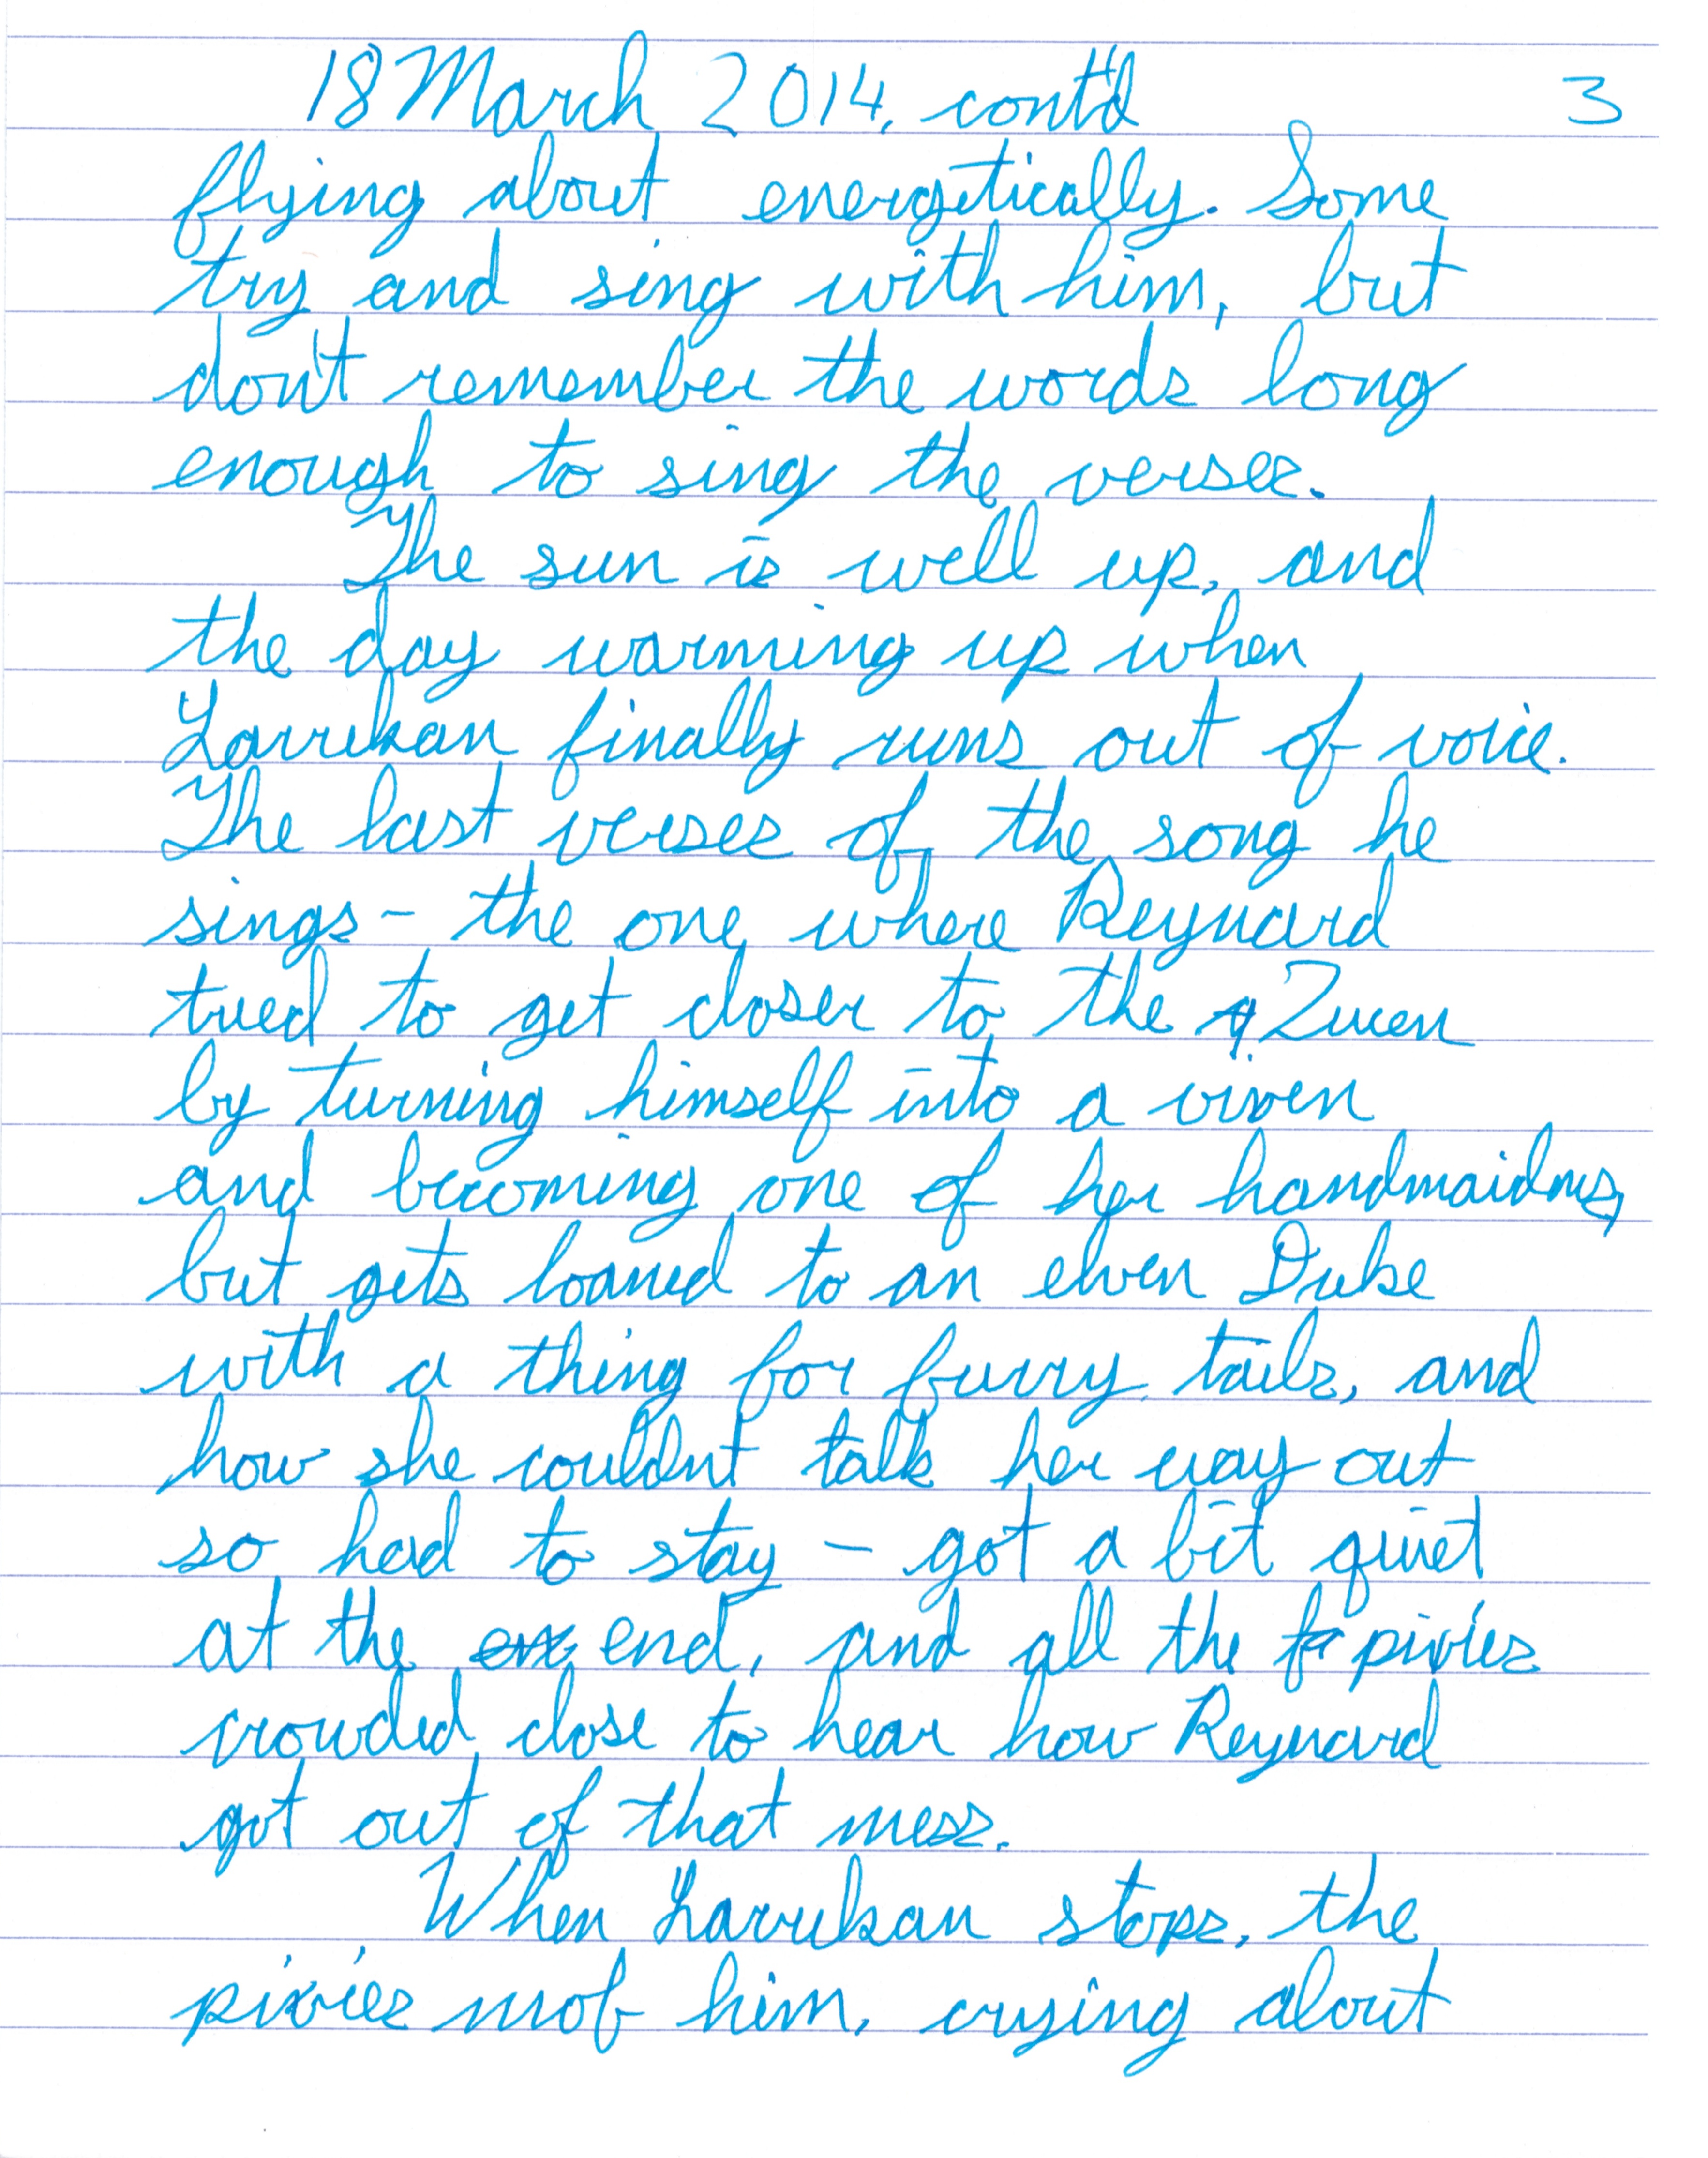 18 March 2014, cont'd 3
flying about energetically. Some
try and sing with him, but
don't remember the words long
enough to sing the verses.
The sun is well up, and
the day warming up when
Larrikan finally runs out of voice.
The last verses of the song he
sings - the one where Reynard
tried to get closer to the q Queen
by turning himself into a vixen
and becoming one of her handmaidens,
but gets loaned to an elven Duke
with a thing for furry tails, and
how she couldn't talk her way out
so had to stay - got a bit quiet
at the en end, and all the fa pixies
crowded close to hear how Reynard
got out of that mess.
When Larrikan stops, the
pixies mob him, crying about